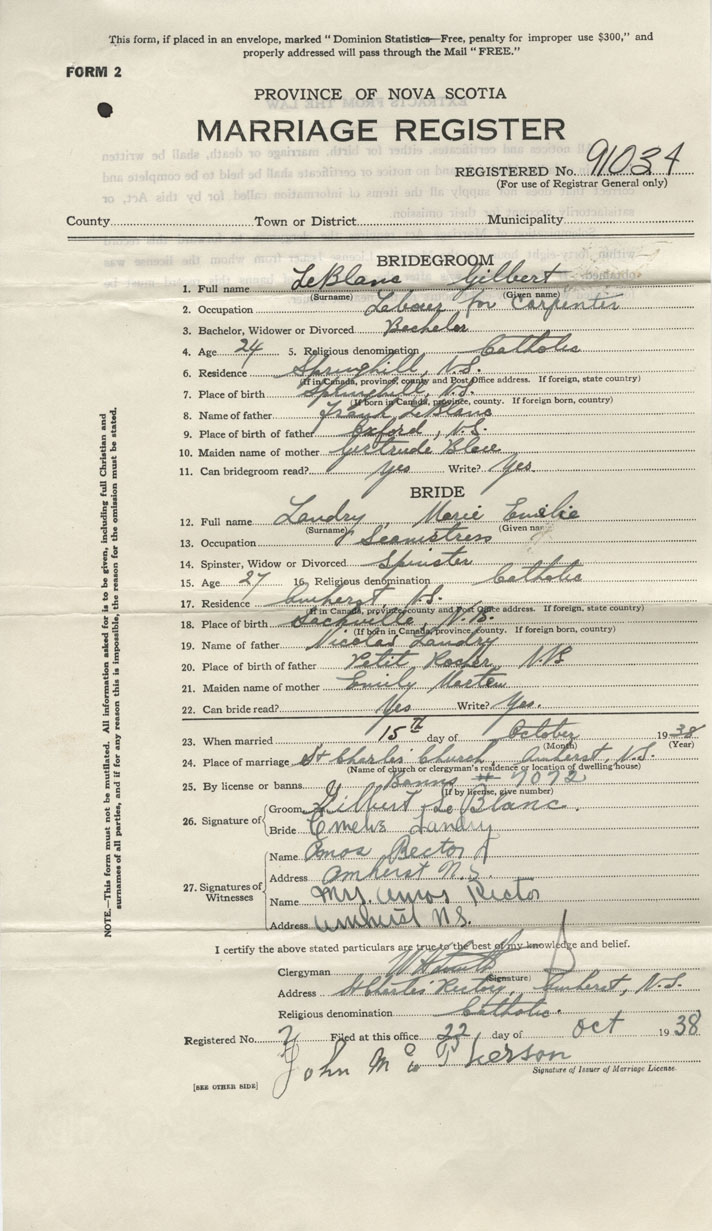 This form, if placed in an envelope, marked "Dominion Statistics—Free, penalty for improper use $300," and
properly addressed will pass through the Mail "FREE."
FORM 2
PROVINCE OF NOVA SCOTIA
MARRIAGE REGISTER
REGISTERED No. 91034
(For use of Registrar General only)
County Town or District Municipality
BRIDEGROOM
1. Full name LeBlanc Gilbert
(Surname) (Given name)
2. Occupation Labour for Carpenter
3. Bachelor, Widower or Divorced Bachelor
4. Age 24 5. Religious denomination Catholic
6. Residence Springhill, N.S.
(If in Canada, province, county and Post Office address. If foreign, state country)
7. Place of birth Springhill, N.S.
(If born in Canada, province, county. If foreign born, country)
8. Name of father Frank LeBlanc
9. Place of birth of father Oxford, N.S.
10. Maiden name of mother Gertrude
11. Can bridegroom read? yes Write? Yes.
BRIDE
12. Full name Landry, Marie Emilie
(Surname) (Given name)
13. Occupation Seamstress
14. Spinster, Widow or Divorced Spinster
15. Age 27 16. Religious denomination Catholic
17. Residence Amherst, N.S.
(If in Canada, province, county and Post Office address. If foreign, state country)
18. Place of birth Sackville, N.B.
(If born in Canada, province, county. If foreign born, country)
19. Name of father Nicolas Landry
20. Place of birth of father Petit Rocher, N.B.
21. Maiden name of mother Emily Marten
22. Can bride read? Yes Write? Yes.
23. When married 15th day of October 1938
(Month) (Year)
24. Place of marriage St Charles Church, Amherst, N.S.
(Name of church or clergyman's residence or location of dwelling house)
25. By license or banns Banns # 7072
(If by license, give number)
26. Signature of Groom Gilbert LeBlanc.
Bride Emelie Landry
27. Signatures of Witnesses Name Amos Rector
Address Amherst N.S.
Name Mrs. Amos Rector
Address Amherst N.S.
I certify the above stated particulars are true to the best of my knowledge and belief.
Clergyman
(Signature)
Address St Charles Rectory, Amherst, N.S.
Religious denomination Catholic.
Registered No. 7 Filed at this office 22 day of Oct 1938
John McPherson
Signature of Issuer of Marriage License.
[SEE OTHER SIDE]
NOTE.—This form must not be mutilated. All information asked for is to be given, including full Christian and
surnames of all parties, and if for any reason this is impossible, the reason for the omission must be stated.